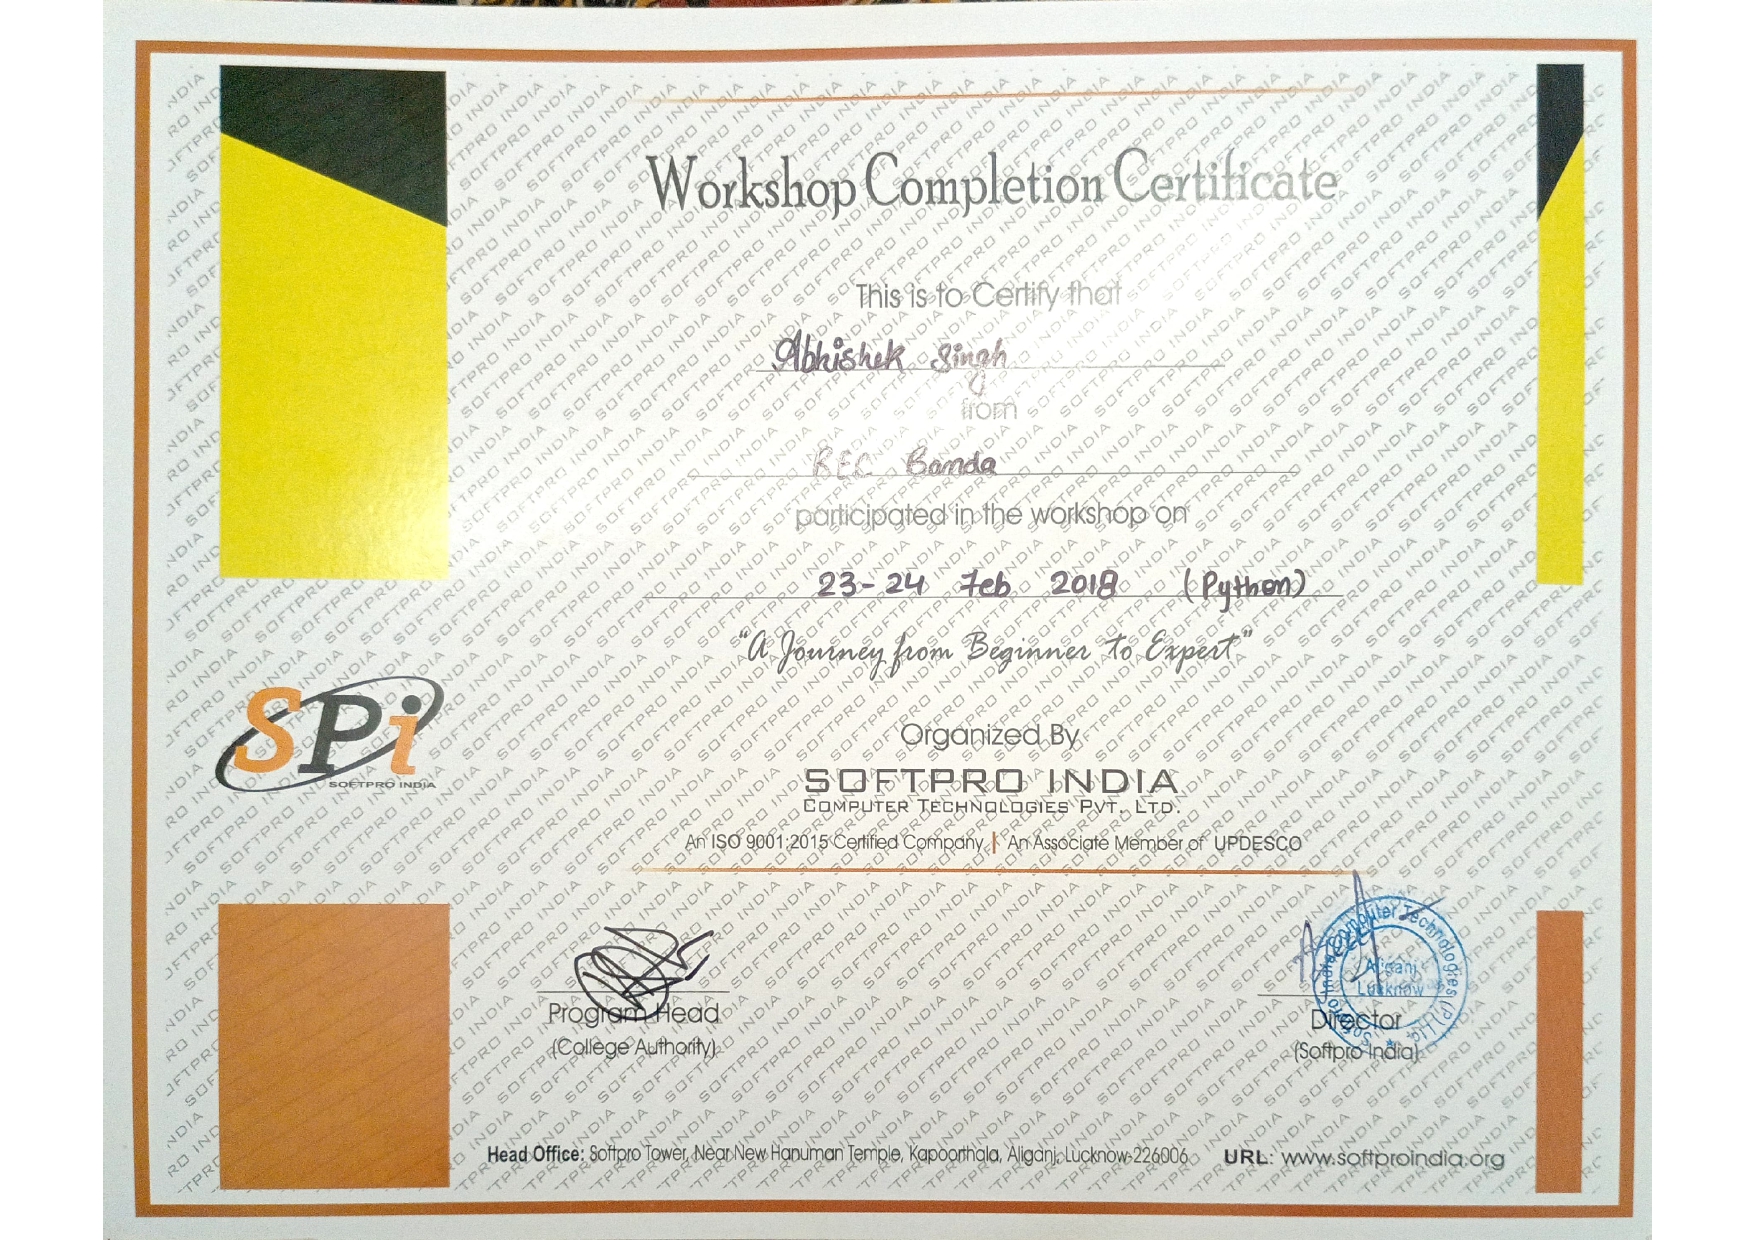 Workshop Completion Certificate
This is to Certify that
Abhishek Singh
from
REC Banda
participated in the workshop on
23-24 Feb 2018 (Python)
"A Journey from Beginner to Expert"
SPi
SOFTPRO INDIA
Organized By
SOFTPRO INDIA
COMPUTER TECHNOLOGIES PVT. LTD.
An ISO 9001:2015 Certified Company | An Associate Member of UPDESCO
Softpro India Computer Technologies (P) Ltd
Aliganj
Lucknow
Program Head
(College Authority)
Director
(Softpro India)
Head Office: Softpro Tower, Near New Hanuman Temple, Kapoorthala, Aliganj, Lucknow-226006 URL: www.softproindia.org